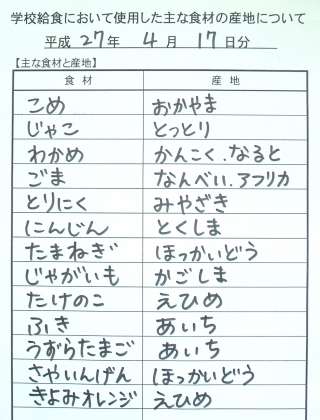 学校給食において使用した主な食材の産地について
平成 27年 4月 17日分
【主な食材と産地】
食材 産地
こめ おかやま
じゃこ とっとり
わかめ かんこく、なると
ごま なんべい、アフリカ
とりにく みやざき
にんじん とくしま
たまねぎ ほっかいどう
じゃがいも かごしま
たけのこ えひめ
ふき あいち
うずらたまご あいち
さやいんげん ほっかいどう
きよみオレンジ えひめ